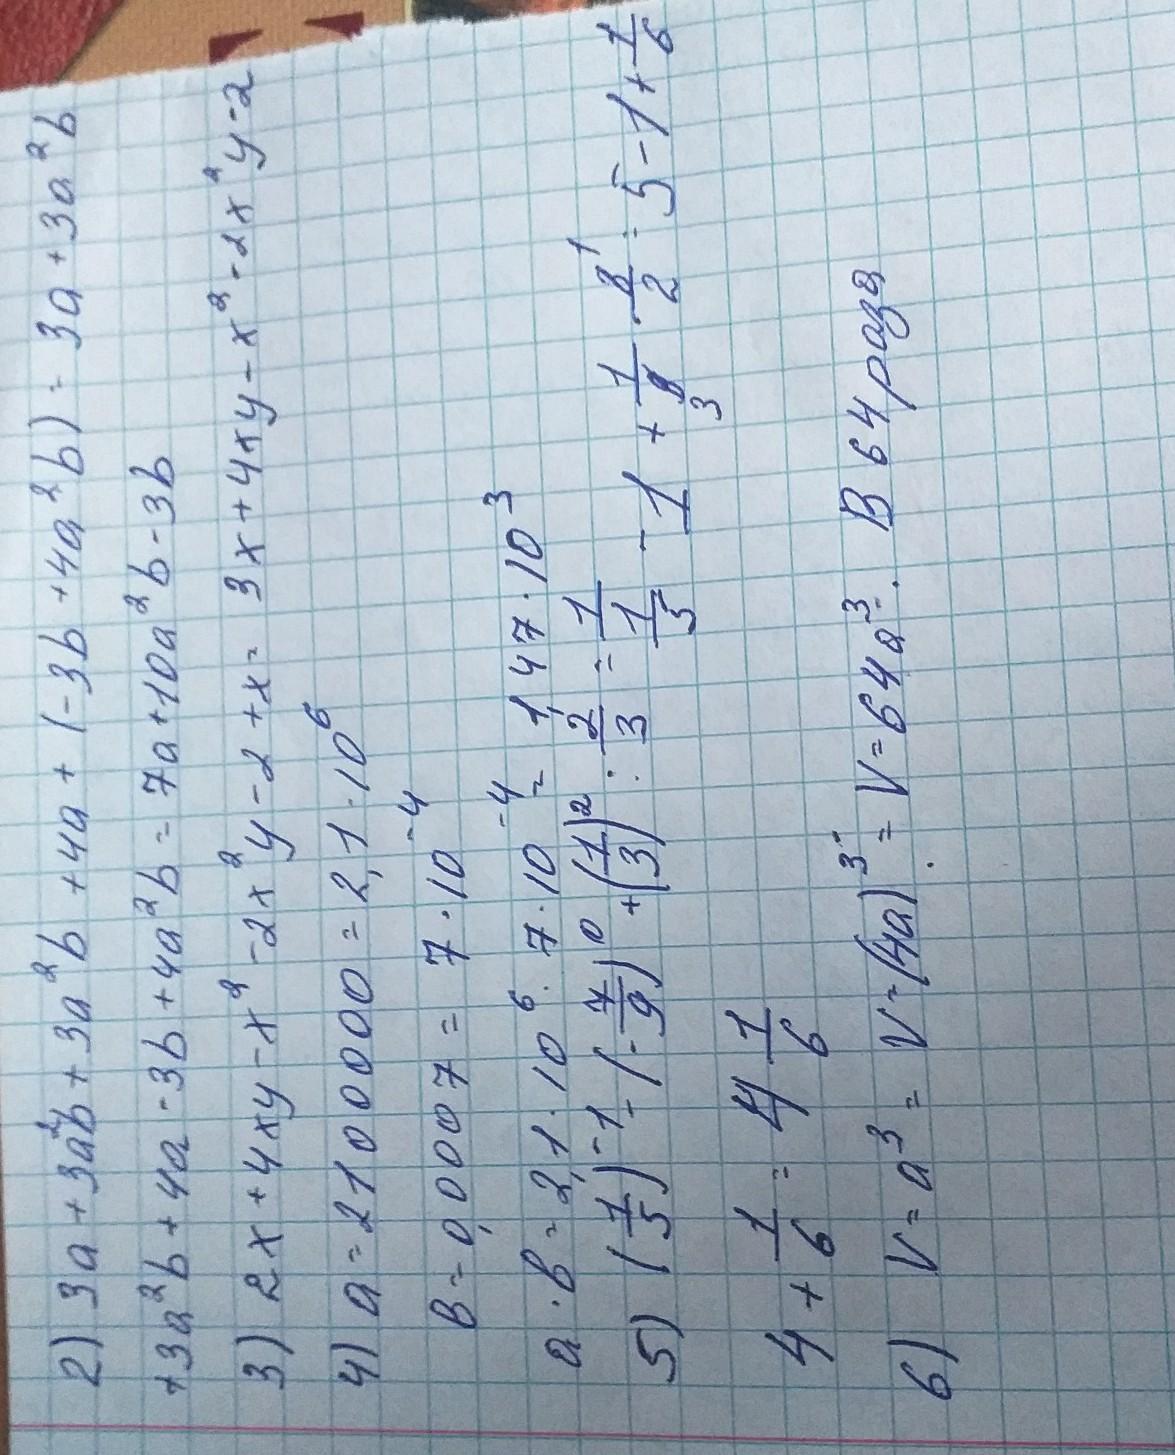 2) 3a + 3a²b + 3a²b + 4a + (-3b + 4a²b) = 3a + 3a²b
+3a²b + 4a - 3b + 4a²b = 7a + 10a²b - 3b
3) 2x + 4xy - x² - 2x²y - 2 + x = 3x + 4xy - x² - 2x²y - 2
4) a = 2100000 = 2,1 · 10⁶
B = 0,0007 = 7 · 10⁻⁴
a · B = 2,1 · 10⁶ · 7 · 10⁻⁴ = 1,47 · 10³
5) (1/5)⁻¹ - (-7/9)⁰ + (1/3)² : 2/3 = 1/(1/5) - 1 + 1/9 · 3/2 = 5 - 1 + 1/6
4 + 1/6 = 4 1/6
6) V = a³ = V = (4a)³ = V = 64a³. В 64 раза